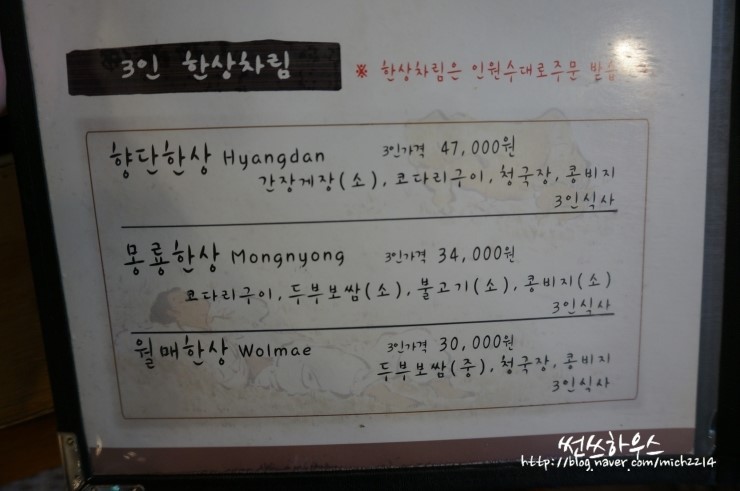 3인 한상차림
※ 한상차림은 인원수대로주문 받습
향단한상 Hyangdan 3인가격 47,000원
간장게장(소), 코다리구이, 청국장, 콩비지
3인식사
몽룡한상 Mongnyong 3인가격 34,000원
코다리구이, 두부보쌈(소), 불고기(소), 콩비지(소)
3인식사
월매한상 Wolmae 3인가격 30,000원
두부보쌈(중), 청국장, 콩비지
3인식사
썬쓰하우스
http://blog.naver.com/mich2214